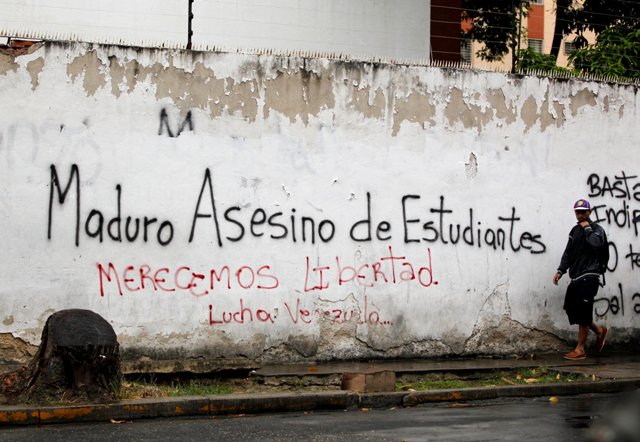 M
Maduro Asesino de Estudiantes
MERECEMOS LibertAd.
Lucha Venezuela...
BASTA